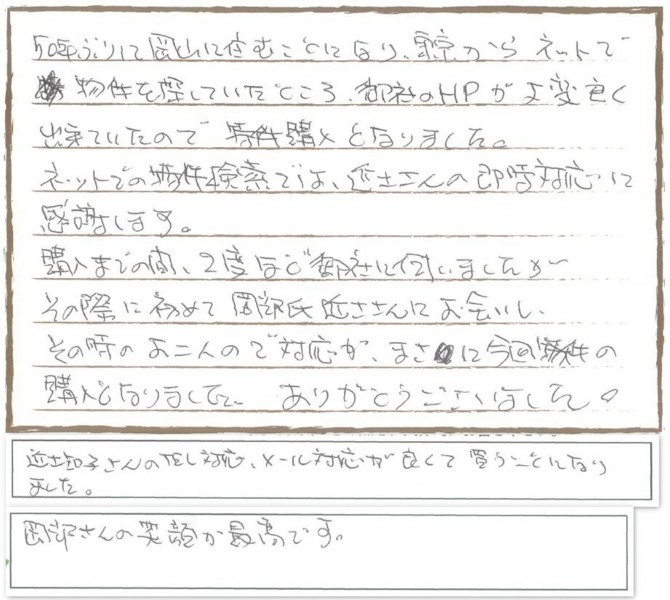 50年ぶりに岡山に住むことになり、東京からネットで
物件を探していたところ、御社のHPが大変良く
出来ていたので物件購入となりました。
ネットでの物件検索では、近土さんの即時対応に
感謝します。
購入までの間、2度ほど御社に伺いましたが
その際に初めて岡部氏近土さんにお会いし、
その時のお二人のご対応が、まさに今回物件の
購入となりました。ありがとうございました。
近土知子さんの 対応、メール対応が良くて買うことになり
ました。
岡部さんの笑顔が最高です。